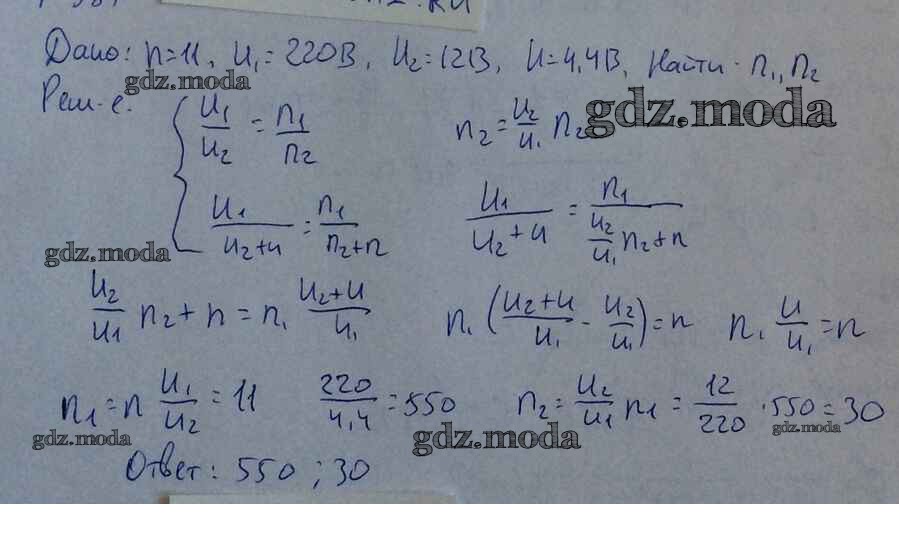 Дано: n=11, U₁=220В, U₂=12В, U=4,4В, Найти: n₁, n₂
gdz.moda
Реш-е:
U₁/U₂ = n₁/n₂
n₂ = U₂/U₁ n₂
gdz.moda
U₁/(U₂+U) = n₁/(n₂+n)
U₁/(U₂+U) = n₁/(U₂/U₁ n₂+n)
gdz.moda
U₂/U₁ n₂+n = n₁ (U₂+U)/U₁
n₁((U₂+U)/U₁ - U₂/U₁) = n
n₁ U/U₁ = n
n₁ = n U₁/U₂ = 11 220/4,4 = 550
n₂ = U₂/U₁ n₁ = 12/220 · 550 = 30
gdz.moda
gdz.moda
gdz.moda
Ответ: 550 ; 30